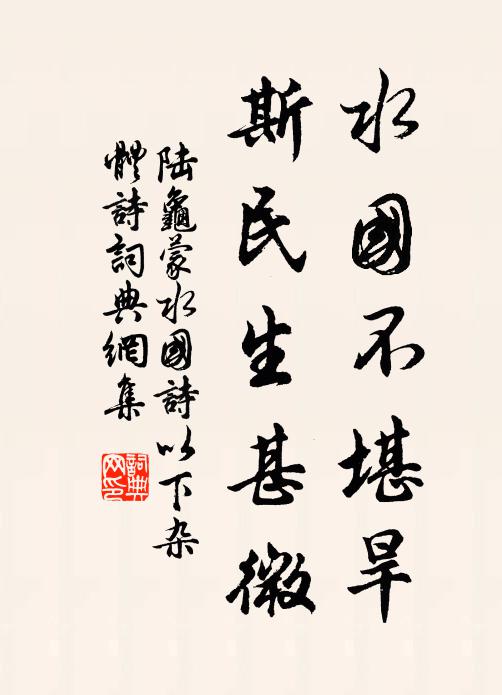 水國不堪旱
斯民生甚微
陆龜蒙水國詩以下杂
體詩詞典網集
詞典网印